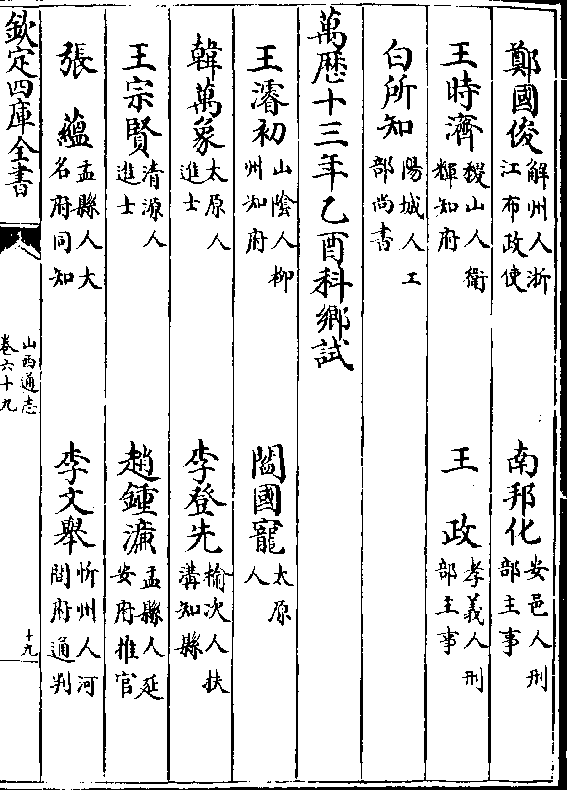 鄭國俊 解州人浙江布政使 南邦化 安邑人刑部主事
王時濟 稷山人衛輝知府 王政 孝義人刑部主事
白所知 陽城人工部尚書
萬歷十三年乙酉科鄉試
王濬初 山陰人柳州知府 閻國寵 太原人
韓萬象 太原人進士 李登先 榆次人扶溝知縣
王宗賢 清源人進士 趙鍾濂 盂縣人延安府推官
張蘊 盂縣人大名府同知 李文舉 忻州人河間府通判
欽定四庫全書 山西通志卷六十九 十九